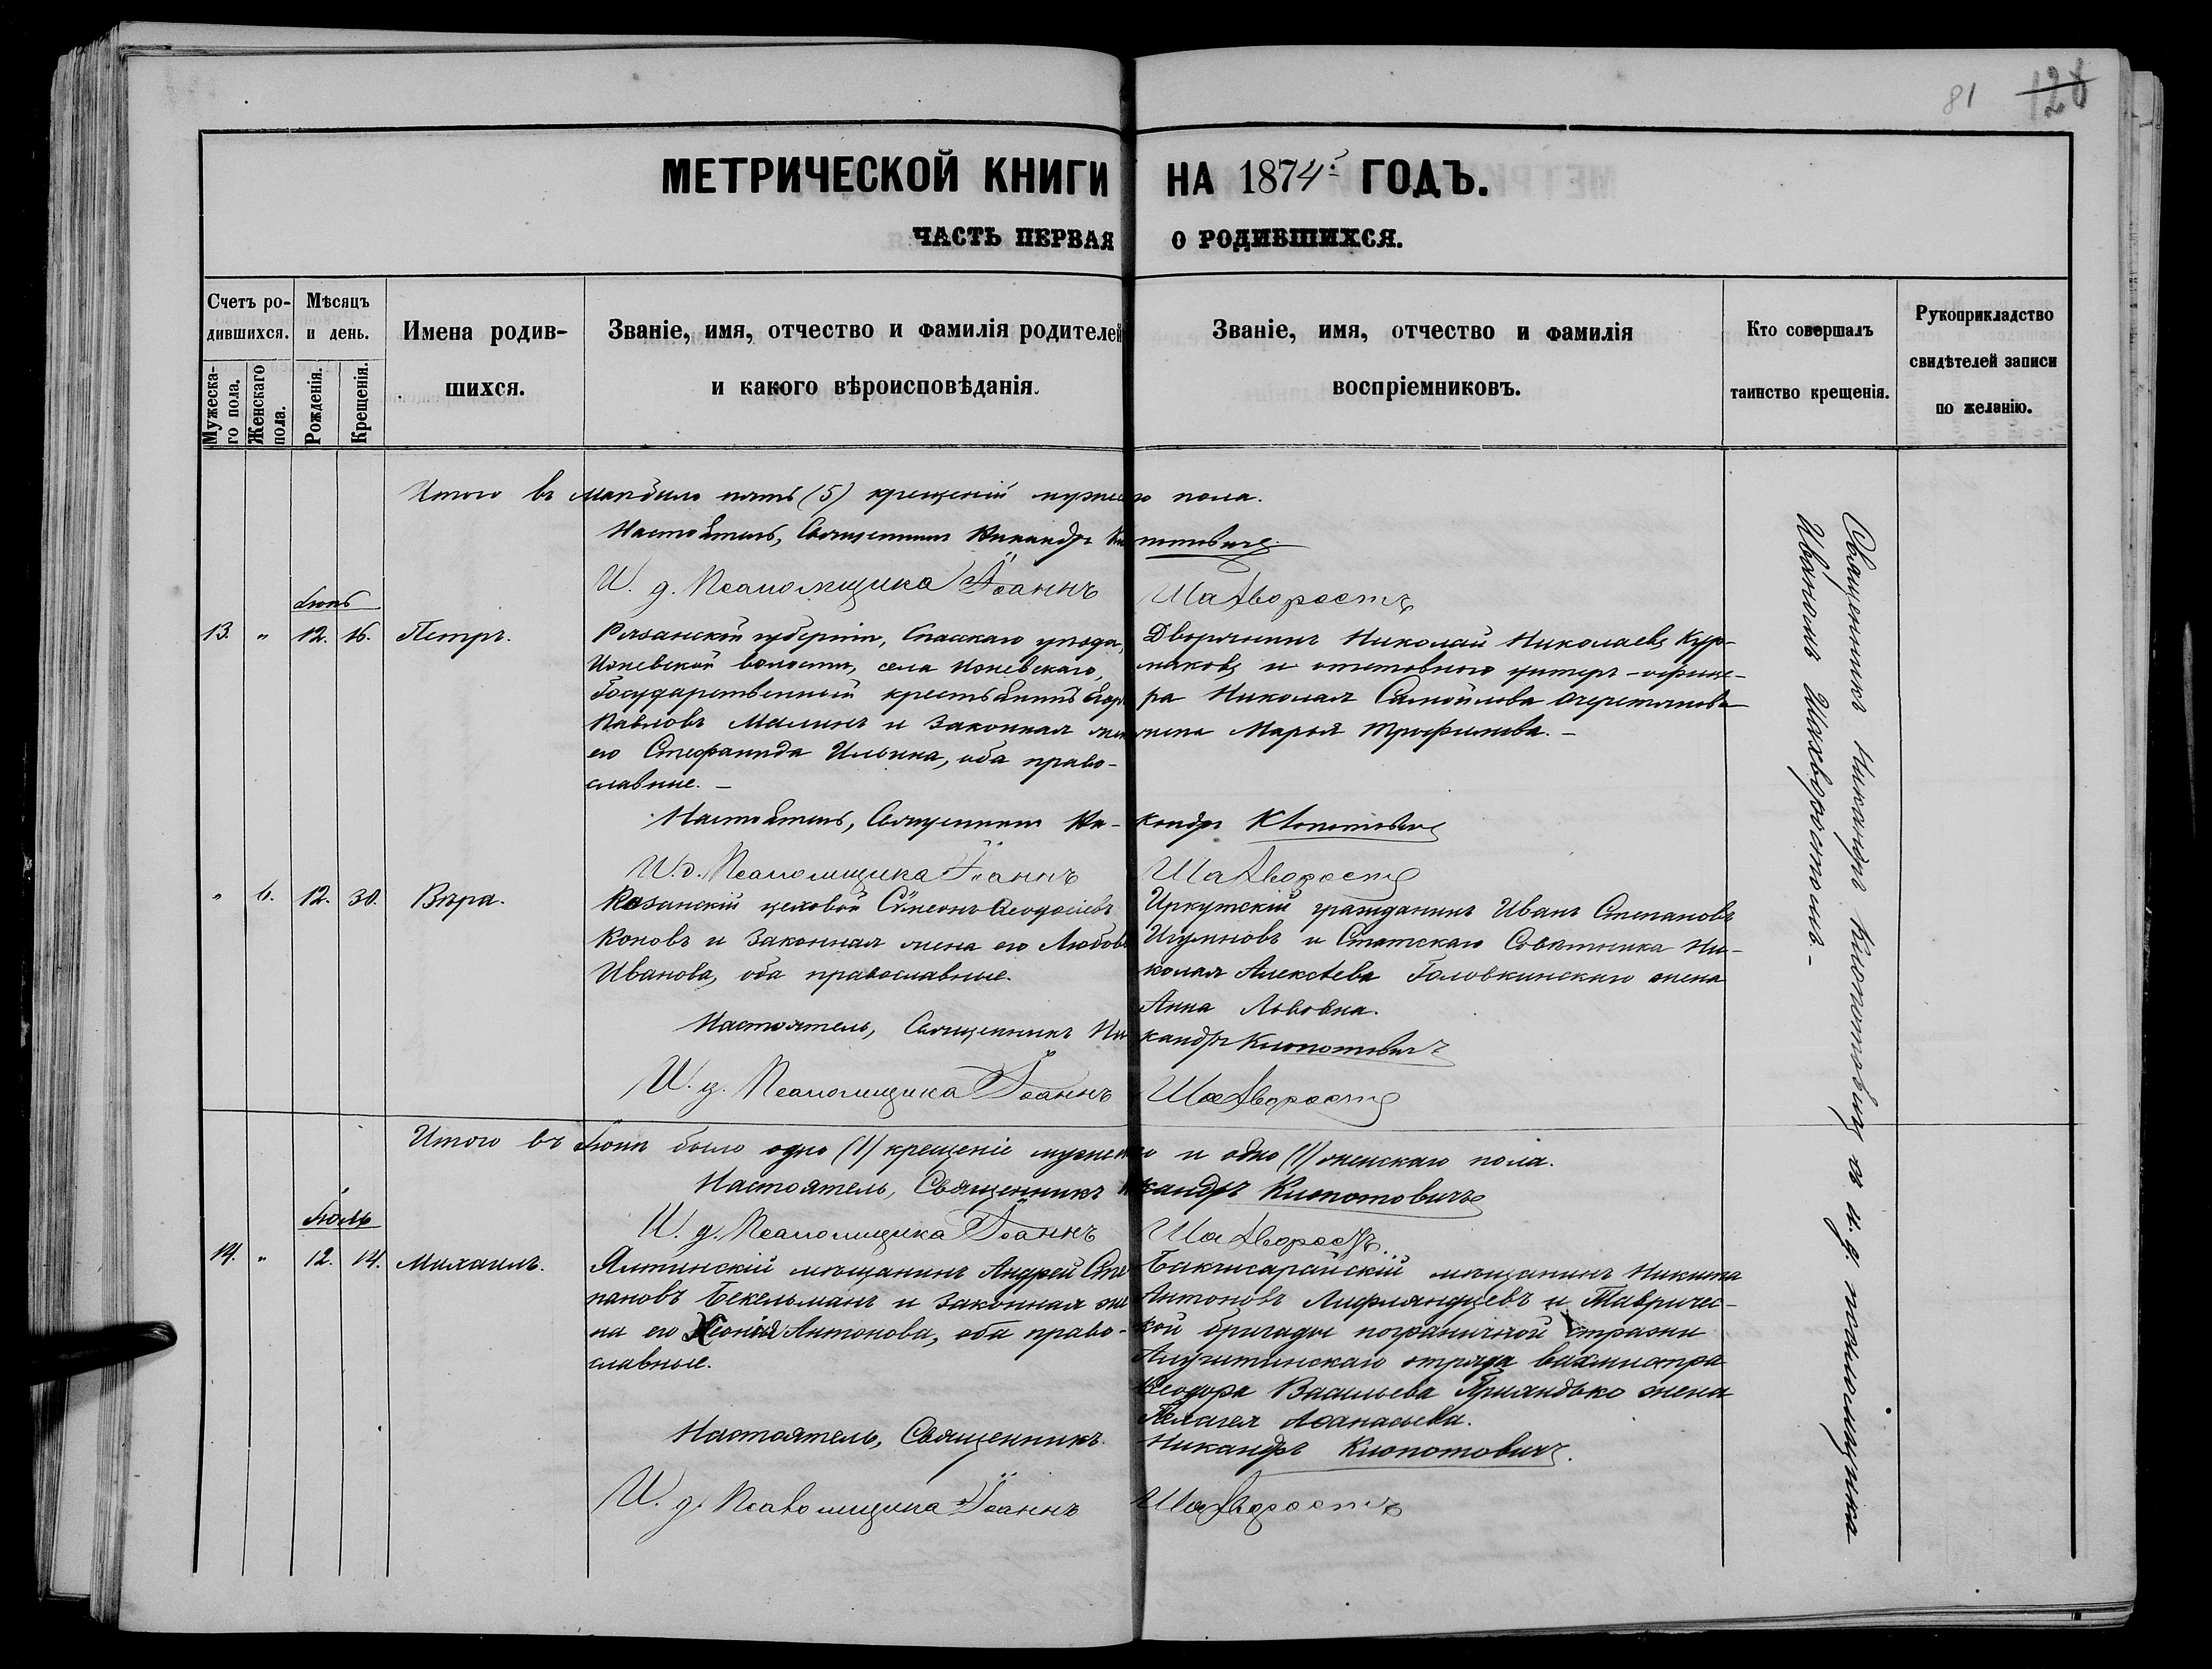 81 128
МЕТРИЧЕСКОЙ КНИГИ НА 1874й ГОДЪ.
ЧАСТЬ ПЕРВАЯ О РОДИВШИХСЯ.
Счетъ ро-
дившихся.
Мужеска-
го пола.
Женскаго
пола.
Мѣсяцъ
и день.
Рожденія.
Крещенія.
Имена родив-
шихся.
Званіе, имя, отчество и фамилія родителей
и какого вѣроисповѣданія.
Званіе, имя, отчество и фамилія
воспріемниковъ.
Кто совершалъ
таинство крещенія.
Рукоприкладство
свидѣтелей записи
по желанію.
Итого въ Маѣ было пять (5) крещеній мужескаго пола.
Настоятель, Священникъ Никандръ Клопотовичъ
И. д. Псаломщика Іоаннъ Шахворостъ
Іюнь
13. " 12. 16. Петръ.
Рязанской губерніи, Спасскаго уѣзда,
Ижевской волости, села Ижевскаго,
Государственный крестьянинъ Егоръ
Павловъ Малинъ и законная жена
его Стефанида Ильина, оба право-
славные. –
Дворянинъ Николай Николаевъ Кур-
наковъ и отставного унтеръ-офице-
ра Николая Самойлова
жена Марья Трофимова. –
Настоятель, Священникъ Никандръ Клопотовичъ
И. д. Псаломщика Іоаннъ Шахворостъ
" 6. 12. 30. Вѣра.
Казанскій цеховой Сѵмеонъ Ѳеодосіевъ
Коновъ и законная жена его Любовь
Иванова, оба православные.
Иркутскій гражданинъ Иванъ Степановъ
Игумновъ и Статскаго Совѣтника Ни-
колая Алексѣева Головкинскаго жена
Анна Львовна.
Настоятель, Священникъ Никандръ Клопотовичъ
И. д. Псаломщика Іоаннъ Шахворостъ
Итого въ Іюнѣ было одно (1) крещеніе мужескаго и одно (1) женскаго пола.
Настоятель, Священникъ Никандръ Клопотовичъ
И. д. Псаломщика Іоаннъ Шахворостъ
Іюль
14. " 12. 14. Михаилъ.
Ялтинскій мѣщанинъ Андрей Сте-
пановъ Бекельманъ и законная же-
на его Ксенія Антонова, оба право-
славные.
Бакчисарайскій мѣщанинъ Никита
Антоновъ Лифляндцевъ и Тавричес-
кой бригады пограничной стражи
Алуштинскаго отряда вахмистра
Ѳеодора Васильева жена
Пелагея Аѳанасьева.
Настоятель, Священникъ Никандръ Клопотовичъ.
И. д. Псаломщика Іоаннъ Шахворостъ
Священникъ Никандръ Клопотовичъ съ и. д. псаломщика
Иваномъ Шахворостомъ. –